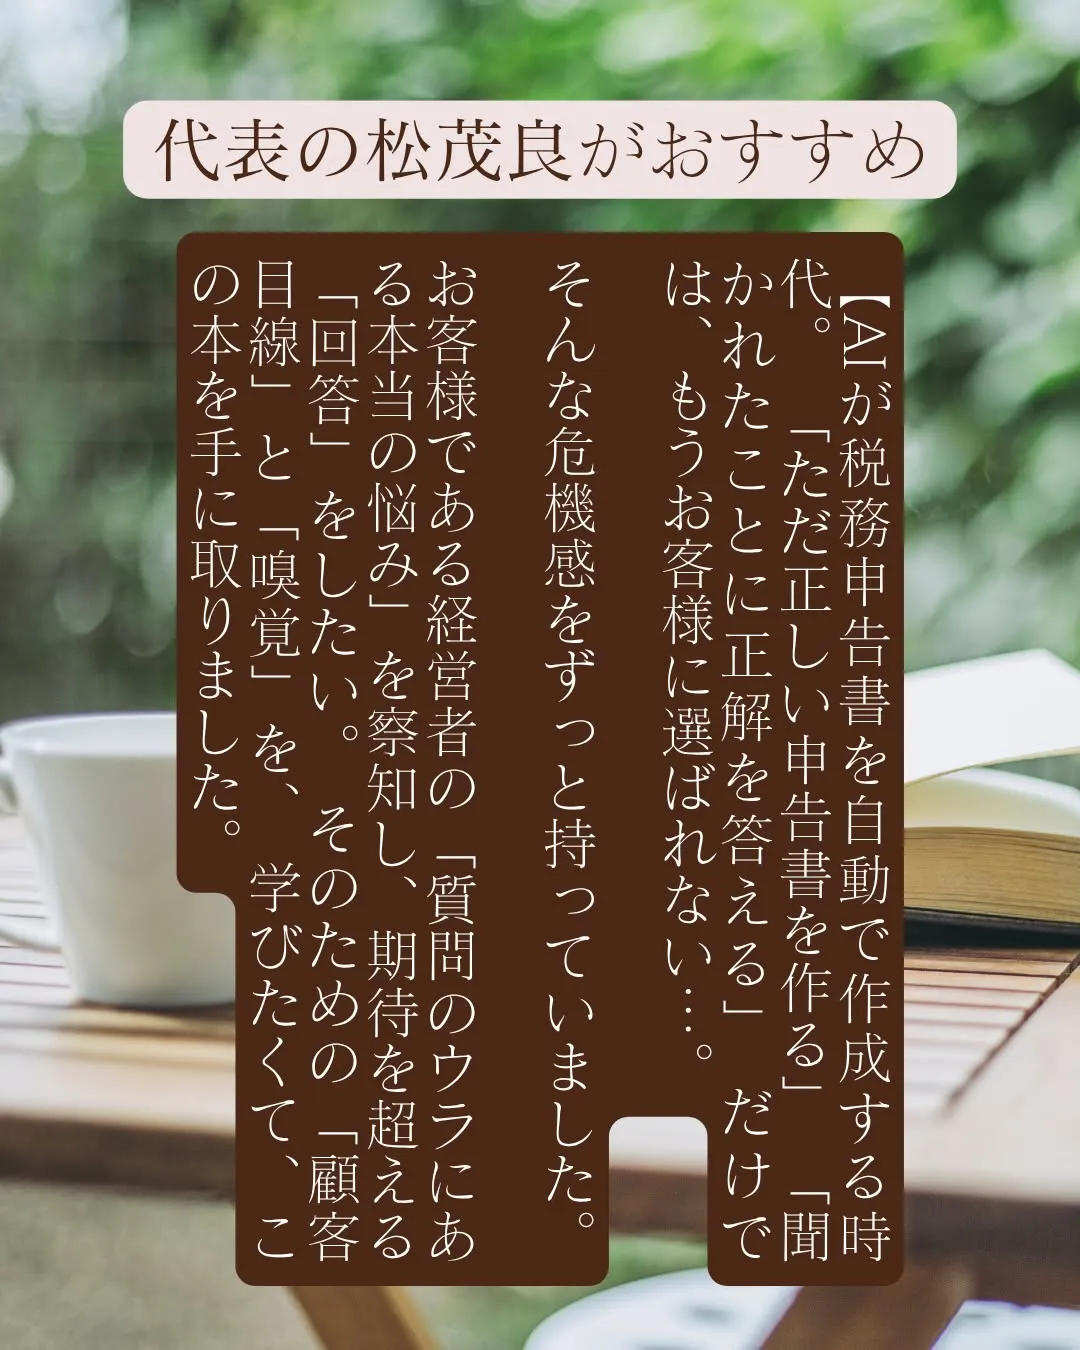 代表の松茂良がおすすめ
【AIが税務申告書を自動で作成する時
代。「ただ正しい申告書を作る」「聞
かれたことに正解を答える」だけで
は、もうお客様に選ばれない…。
そんな危機感をずっと持っていました。
お客様である経営者の「質問のウラにあ
る本当の悩み」を察知し、期待を超える
「回答」をしたい。そのための「顧客
目線」と「嗅覚」を、学びたくて、こ
の本を手に取りました。